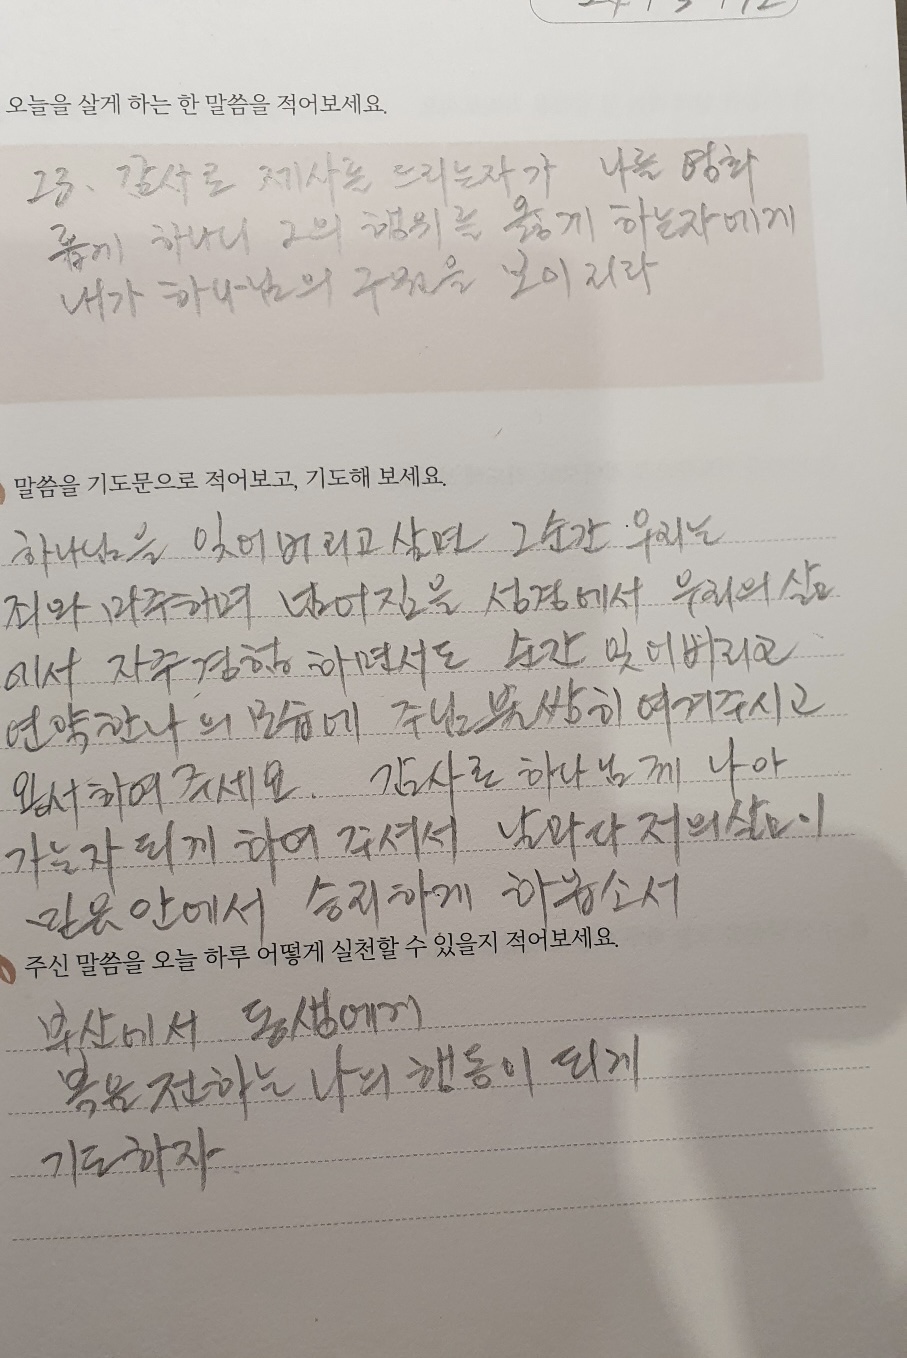 오늘을 살게 하는 한 말씀을 적어보세요.
23. 감사로 제사를 드리는자가 나를 영화
롭게 하나니 그의 행위를 옳게 하는자에게
내가 하나님의 구원을 보이리라
말씀을 기도문으로 적어보고, 기도해 보세요.
하나님을 잊어버리고 살면 그순간 우리는
죄와 마주하며 넘어짐을 성경에서 우리의 삶
에서 자주 경험 하면서도 순간 잊어버리고
연약한 나의 모습에 주님 불쌍히 여겨주시고
용서하여 주세요. 감사로 하나님께 나아
가는자 되게 하여 주셔서 날마다 저의 삶이
믿음 안에서 승리하게 하옵소서
주신 말씀을 오늘 하루 어떻게 실천할 수 있을지 적어보세요.
부산에서 동생에게
복음 전하는 나의 행동이 되게
기도하자